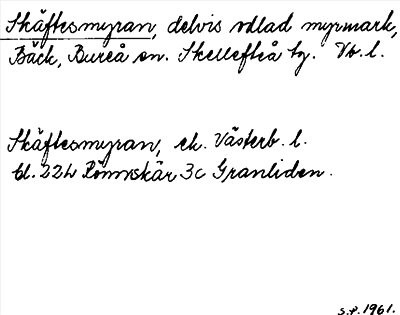 Skäftesmyran, delvis odlad myrmark,
Bäck, Bureå sn. Skellefteå tg. Vb. l.
Skäftesmyran, ek. Västerb. l.
bl. 22L Rönnskär 3c Granliden.
S.P. 1961.